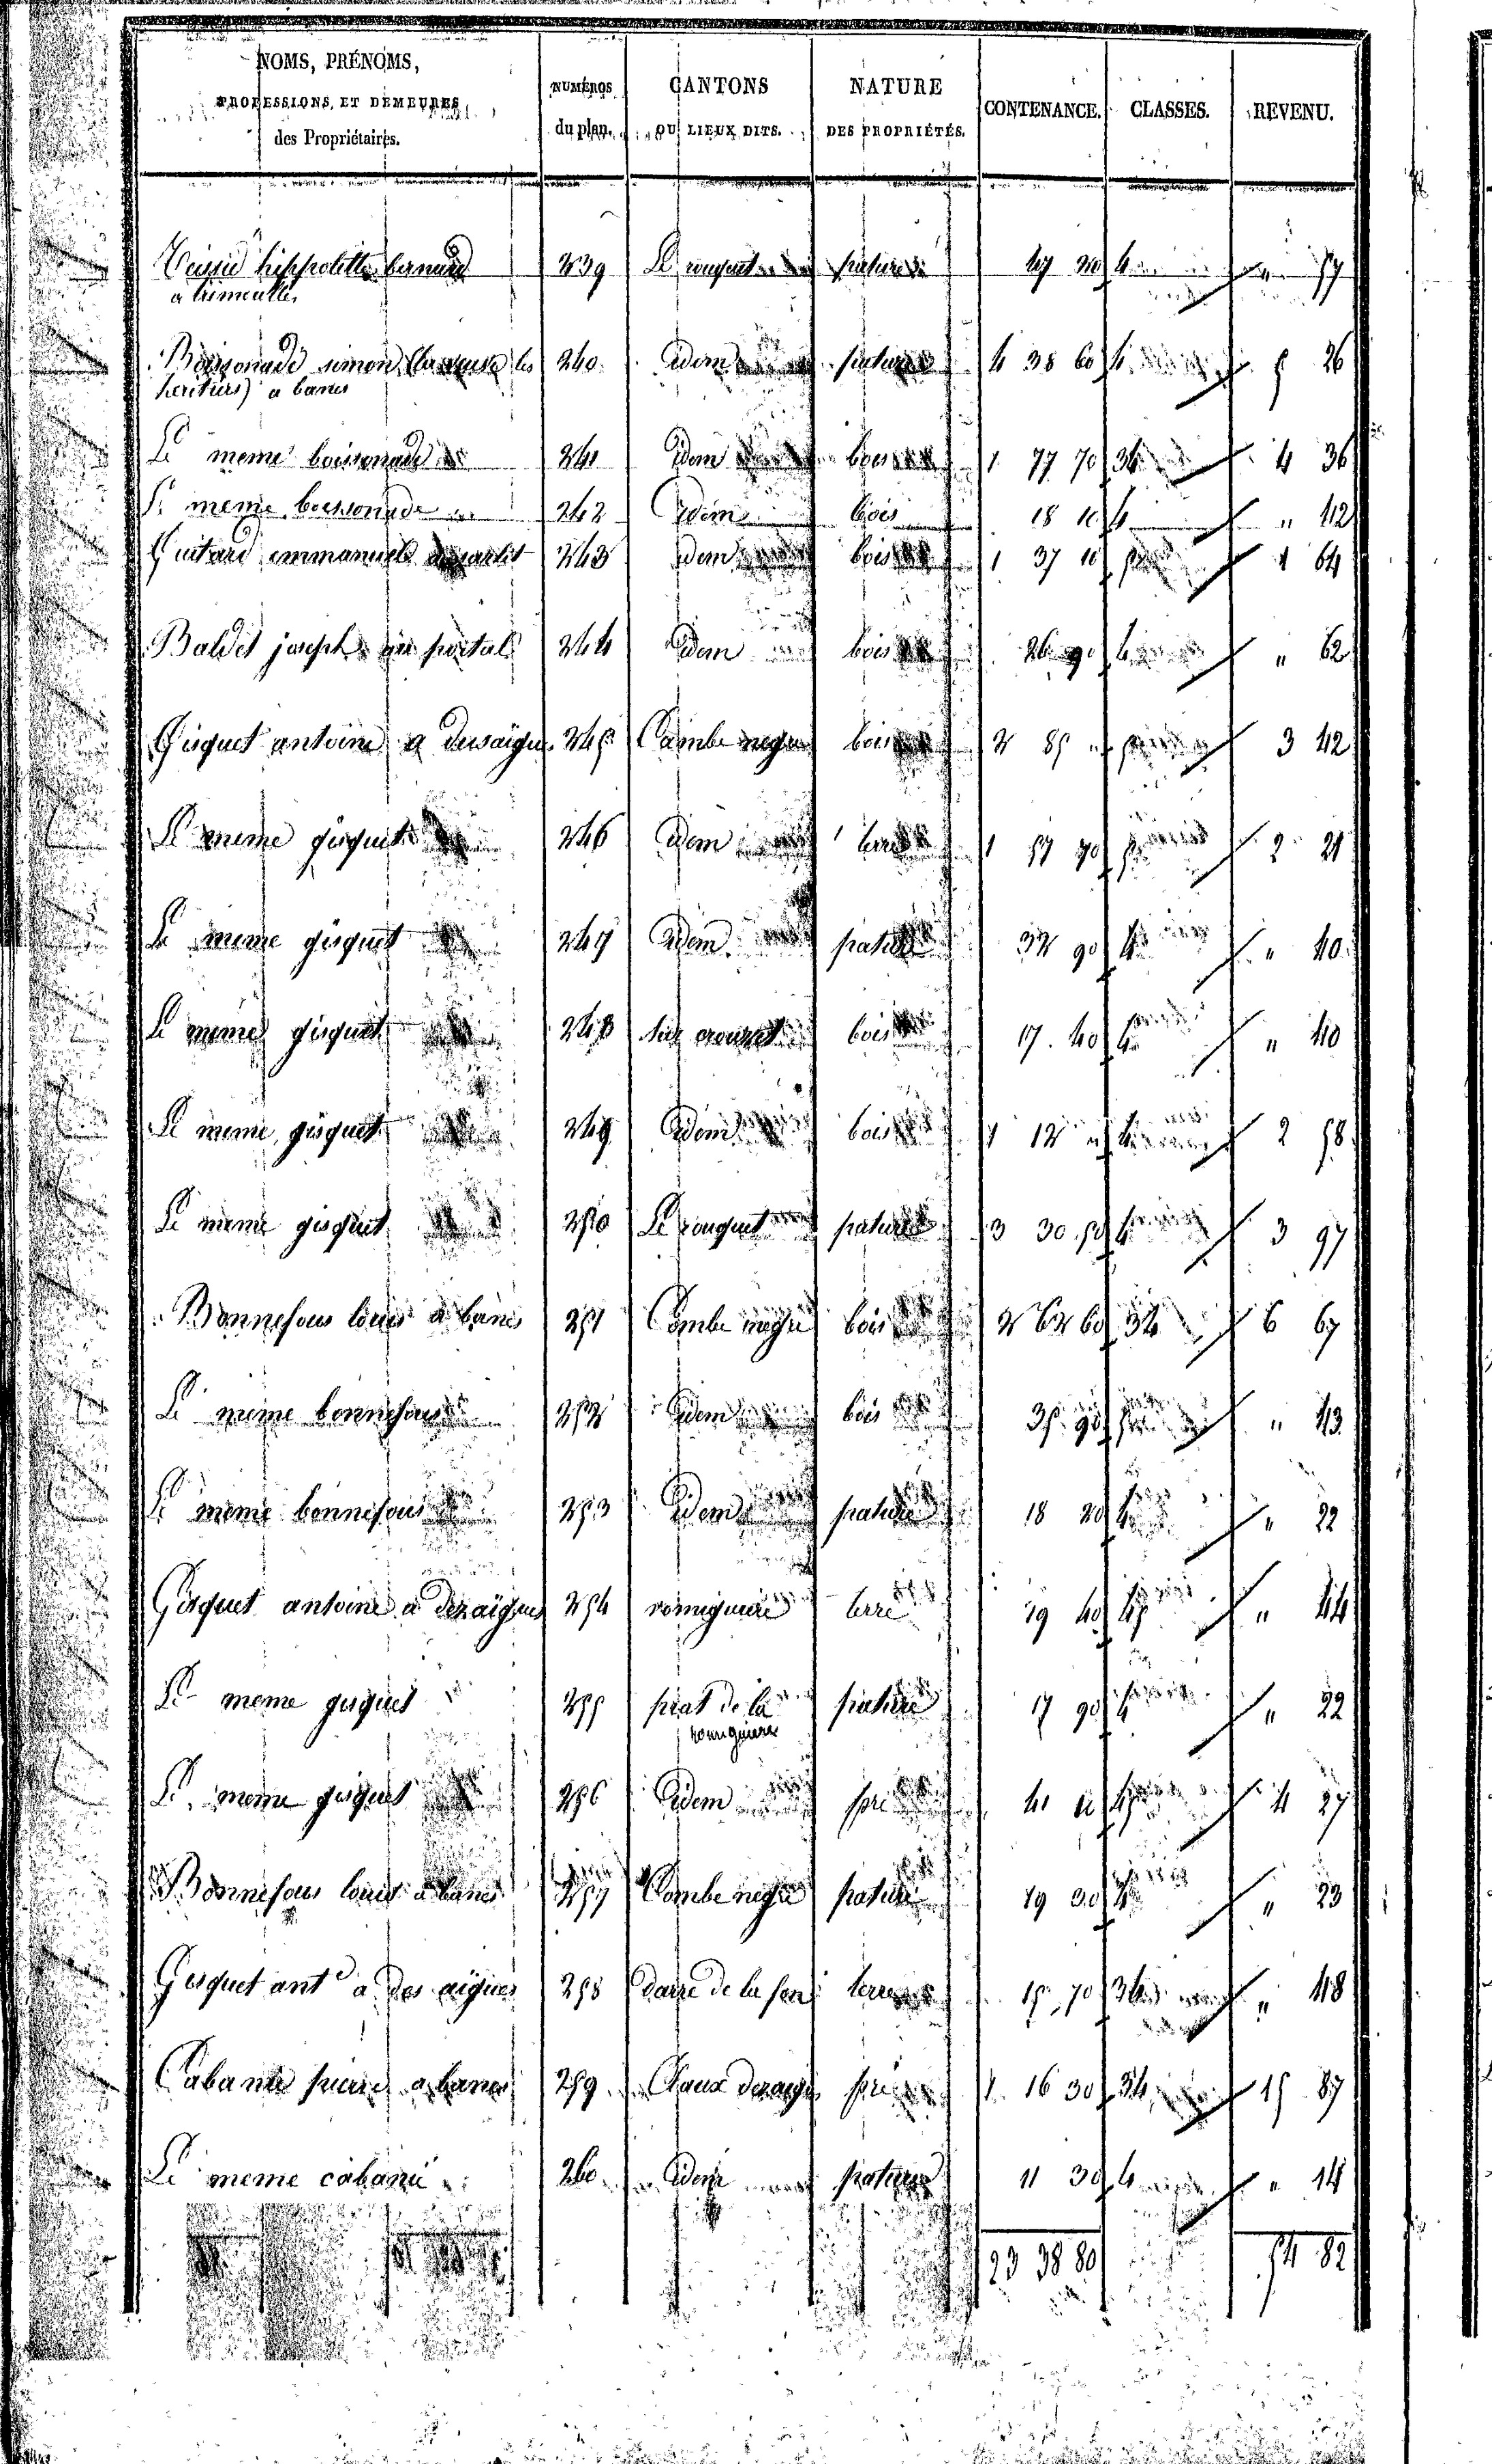 NOMS, PRÉNOMS,
PROFESSIONS, ET DEMEURES
des Propriétaires.
NUMÉROS
du plan.
CANTONS
OU LIEUX DITS.
NATURE
DES PROPRIÉTÉS.
CONTENANCE.
CLASSES.
REVENU.
hippolitte bernard 239 Le rouquet pature 47 20 4 " 57
a
Boissonade simon (la veuve les 240 idem pature 4 38 60 4 5 26
heritiers) a banes
Le meme boissonade 241 idem bois 1 77 70 34 4 36
Le meme boissonade 242 idem bois 18 10 4 " 42
Guitard emmanuel 243 idem bois 1 37 10 5 1 64
Baldet joseph au portal 244 idem bois 26 90 4 " 62
Gisquet antoine a desaigues 245 Combe negre bois 2 85 " 5 3 42
Le meme gisquet 246 idem terre 1 57 70 5 2 21
Le meme gisquet 247 idem pature 32 90 4 " 40
Le meme gisquet 248 bois 17 40 4 " 40
Le meme gisquet 249 idem bois 1 12 " 4 2 58
Le meme gisquet 250 Le rouquet pature 3 30 50 4 3 97
Bonnefous louis a banes 251 Combe negre bois 2 62 60 34 6 67
Le meme bonnefous 252 idem bois 35 90 5 " 43
Le meme bonnefous 253 idem pature 18 20 4 " 22
Gisquet antoine a dezaïgues 254 romiguiere terre 19 40 45 " 44
Le meme gisquet 255 prat de la pature 17 90 4 " 22
romiguiere
Le meme gisquet 256 idem pré 41 10 45 4 27
Bonnefous louis a banes 257 Combe negre pature 19 30 4 " 23
Gisquet ant^e a des aïgues 258 darre de la fon terre 15 70 34 " 48
Cabanié pierre a banes 259 Claux dezaigues pré 1 16 30 34 15 87
Le meme cabanié 260 idem pature 11 30 4 " 14
23 38 80 54 82